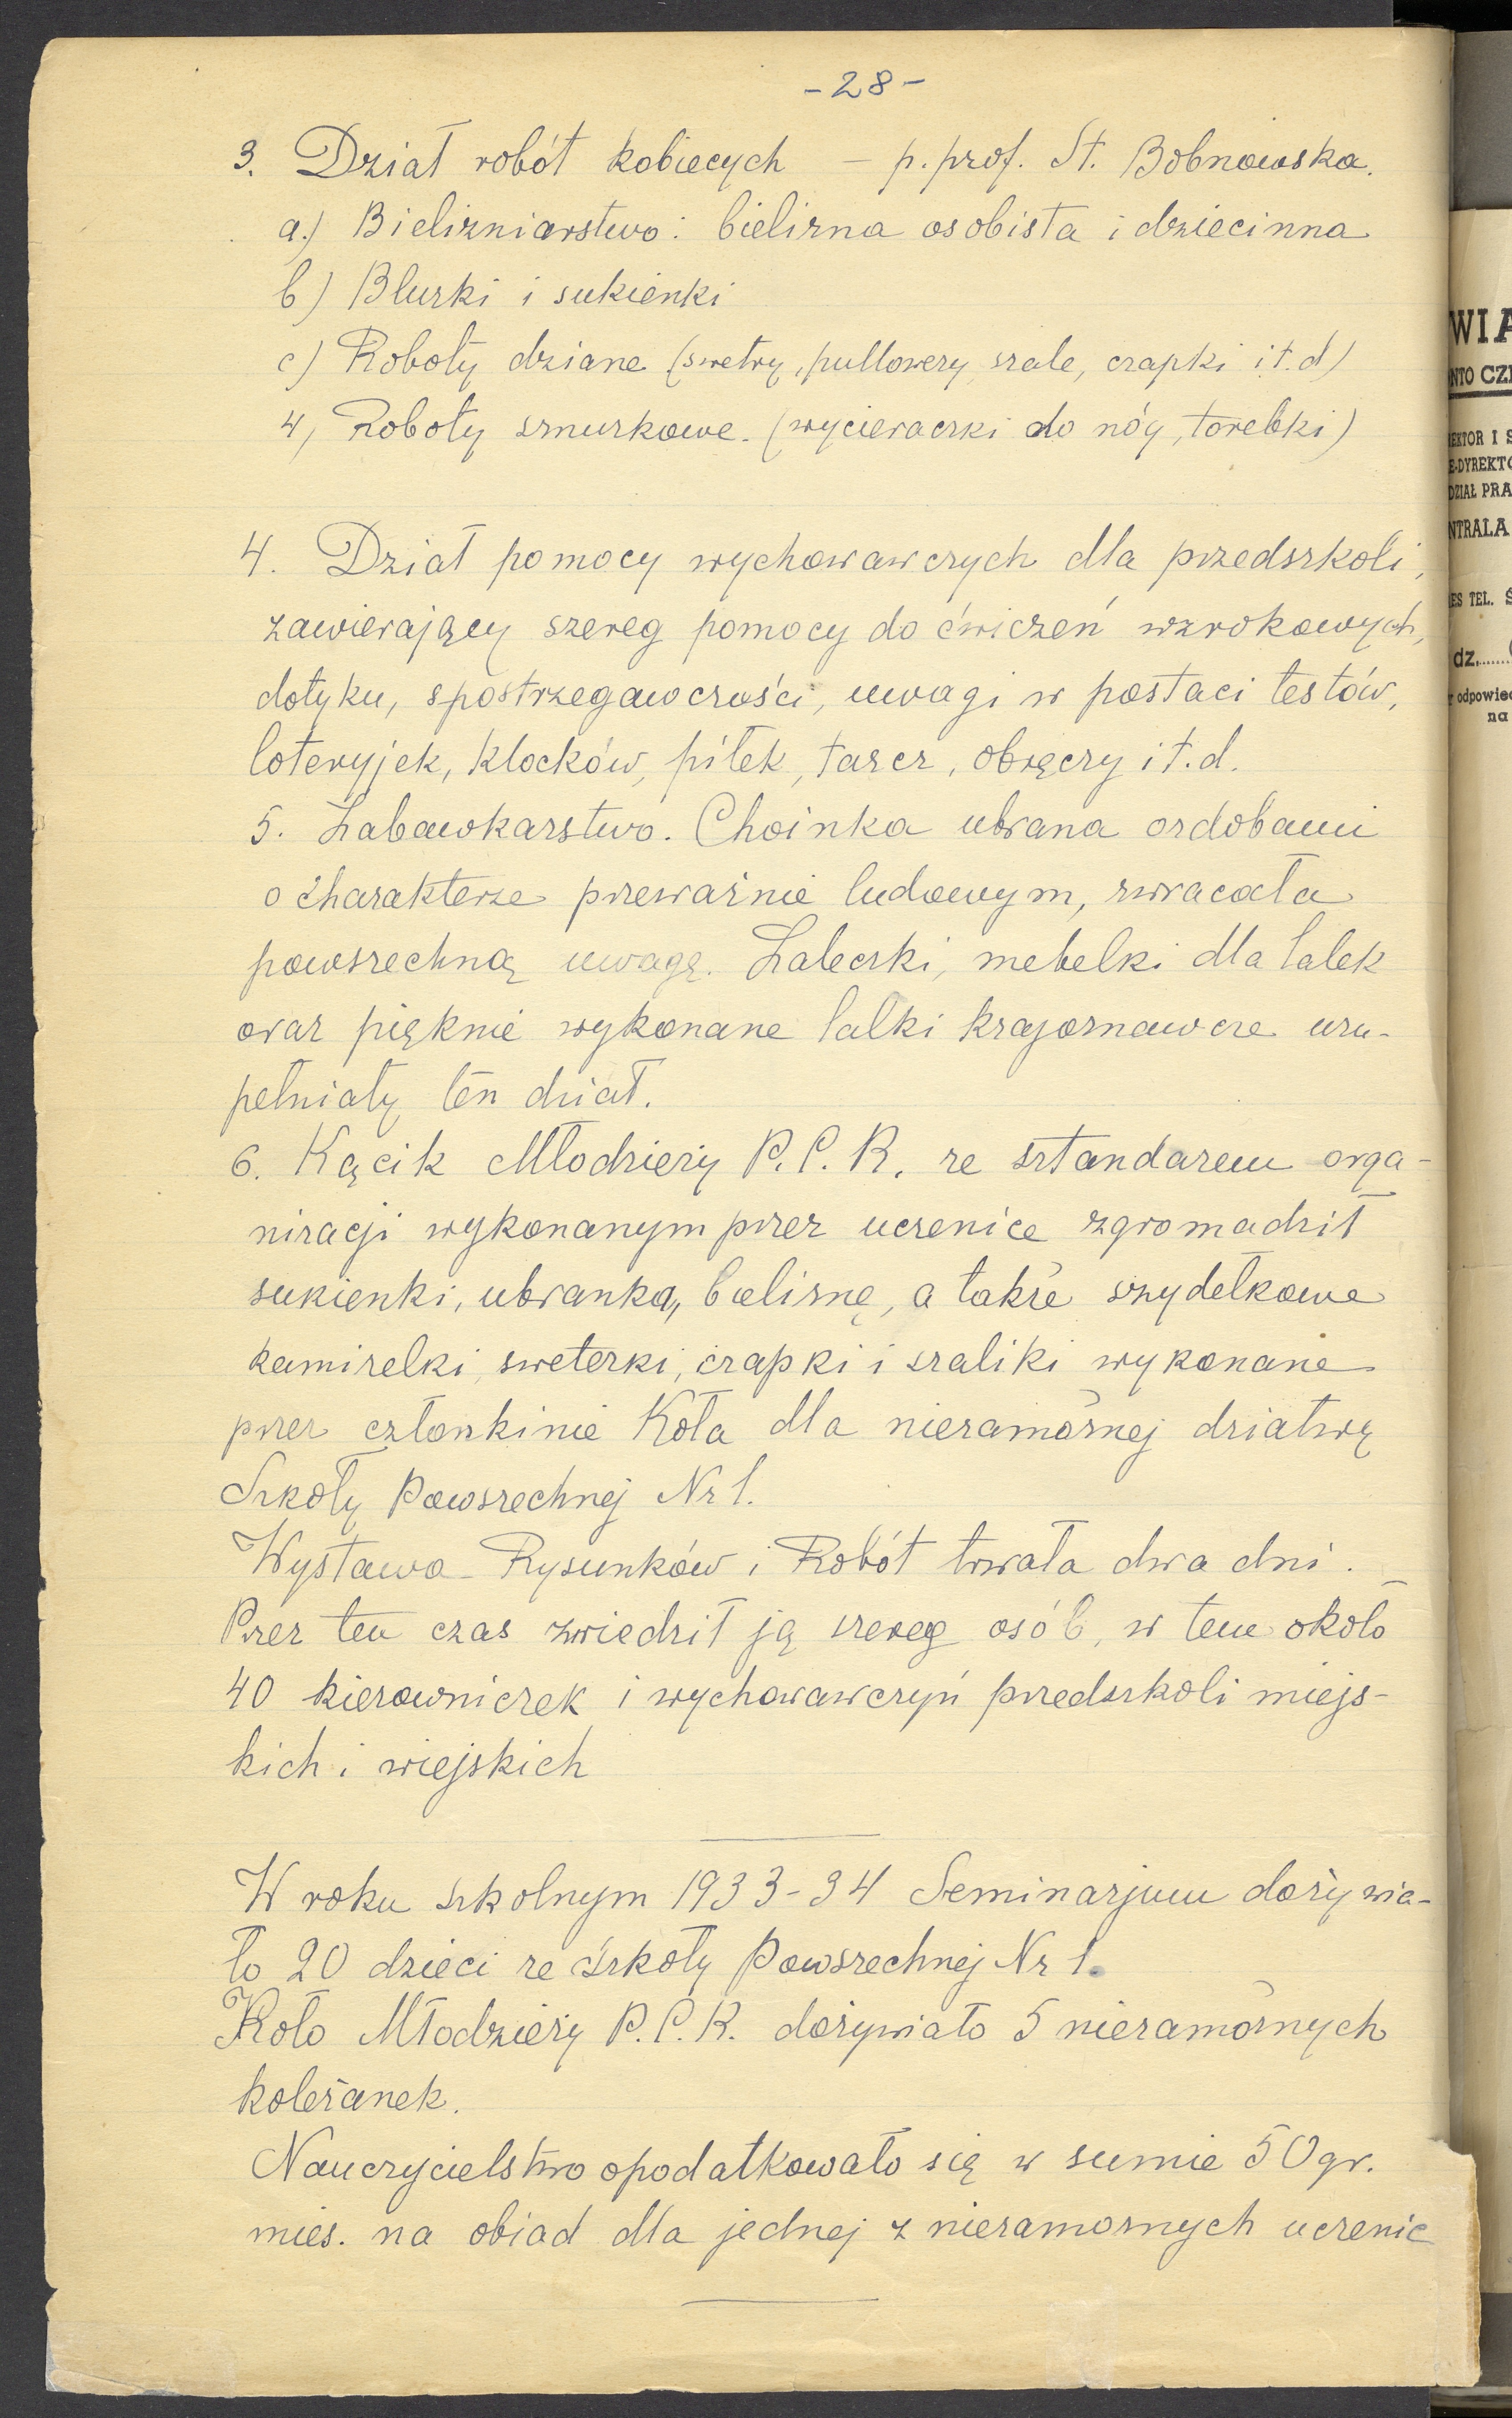 -28-
3. Dział robót kobiecych - p. prof. St. Bobnowska.
a.) Bieliźniarstwo: bielizna osobista i dziecinna
b) Bluzki i sukienki
c) Roboty dziane (swetry, pullowery, szale, czapki i t. d)
4, Roboty sznurkowe. (wycieraczki do nóg, torebki)
4. Dział pomocy wychowawczych dla przedszkoli,
zawierający szereg pomocy do ćwiczeń wzrokowych,
dotyku, spostrzegawczości, uwagi w postaci testów,
loteryjek, klocków, piłek, tarcz, obręczy i t. d.
5. Zabawkarstwo. Choinka ubrana ozdobami
o charakterze przeważnie ludowym, zwracała
powszechną uwagę. Laleczki, mebelki dla lalek
oraz pięknie wykonane lalki krajoznawcze uzu-
pełniały ten dział.
6. Kącik Młodzieży P.C.K. ze sztandarem orga-
nizacji wykonanym przez uczenice zgromadził
sukienki, ubranka, bieliznę, a także szydełkowe
kamizelki, sweterki, czapki i szaliki wykonane
przez członkinie Koła dla niezamożnej dziatwy
Szkoły Powszechnej Nr 1.
Wystawa Rysunków i Robót trwała dwa dni.
Przez ten czas zwiedził ją szereg osób, w tem około
40 kierowniczek i wychowawczyń przedszkoli miejs-
kich i wiejskich
W roku szkolnym 1933-34 Seminarjum dożywia-
ło 20 dzieci ze Szkoły Powszechnej Nr 1.
Koło Młodzieży P.C.K. dożywiało 5 niezamożnych
koleżanek.
Nauczycielstwo opodatkowało się w sumie 50 gr.
mies. na obiad dla jednej z niezamożnych uczenic
WIA
NTO CZ
EKTOR I S
E-DYREKTO
DZIAŁ PRA
NTRALA
ES TEL. Ś
dz.
odpowied
na